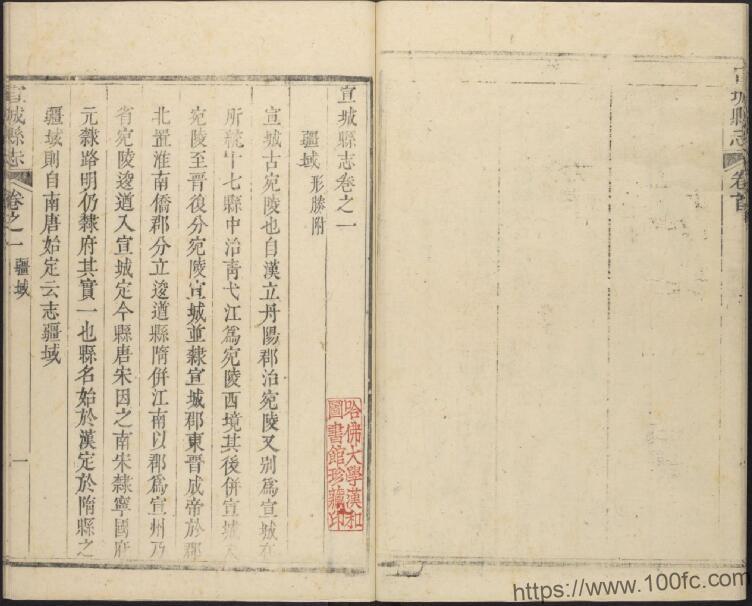 宣城縣志
卷首
宣城縣志卷之一
疆域 形勝附
宣城古宛陵也自漢立丹陽郡治宛陵又别爲宣城在
所統十七縣中治青弋江爲宛陵西境其後併宣城入
宛陵至晉後分宛陵宣城並隸宣城郡東晉成帝於郡
北置淮南僑郡分立逡道縣隋併江南以郡爲宣州乃
省宛陵逡道入宣城定今縣唐宋因之南宋隸寧國府
元隸路明仍隸府其實一也縣名始於漢定於隋縣之
疆域則自南唐始定云志疆域
宣城縣志
卷之一 疆域
一
哈佛大學漢和
圖書館珍藏印
https://www.100fc.com